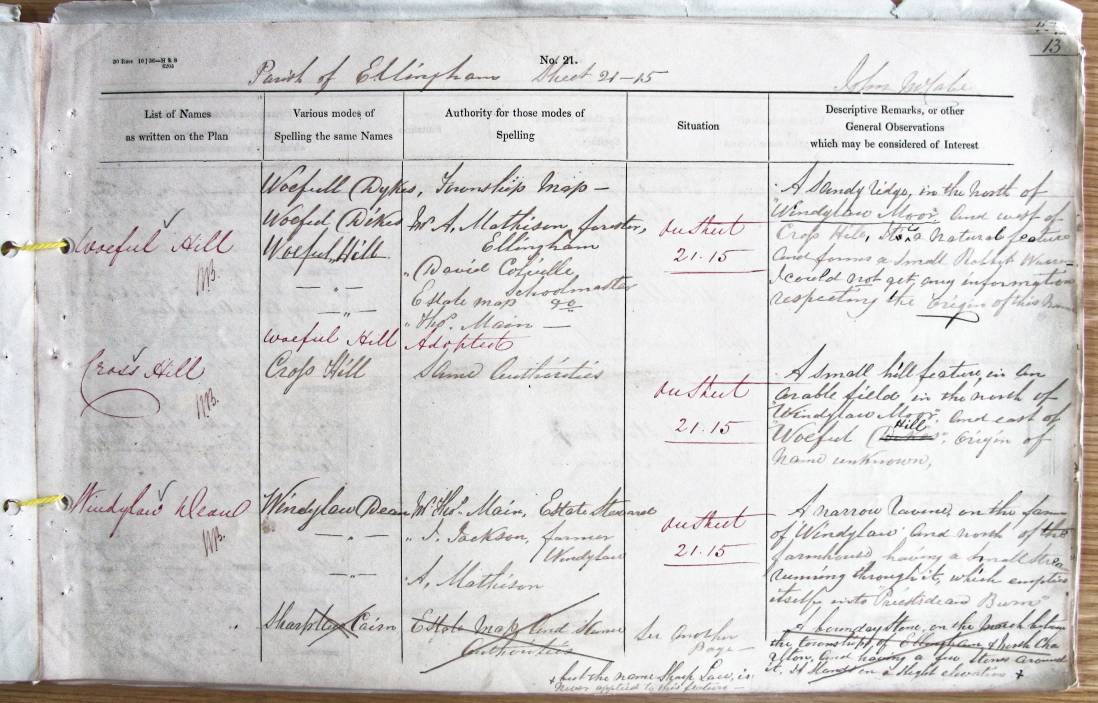 13
No. 21.
Parish of Ellingham Sheet 21-15
List of Names
as written on the Plan
Various modes of
Spelling the same Names
Authority for those modes of
Spelling
Situation
Descriptive Remarks, or other
General Observations
which may be considered of Interest
Woeful Hill
Woefull Dykes,
Woeful Dikes
Woeful Hill
— " —
— " —
Woeful Hill
Township Map —
Mr A. Mathison, forester,
Ellingham
" David Colville
Schoolmaster
Estate map do
" Thos. Main —
Adopted
on Sheet
21.15
A sandy ridge, in the north of
"Windylaw Moor" and west of
Cross Hill, it is a natural feature
and forms a small Rabbit Warren
I could not get any information
respecting the origin of this
Cross Hill
Cross Hill
Same Authorities
on Sheet
21.15
A small hill feature, in an
arable field, in the north of
"Windylaw Moor" and east of
Woeful Hill, Origin of
name unknown,
Windylaw Dean
Windylaw Dean
— " —
— " —
Mr Thos. Main, Estate Steward
" J. Jackson, farmer
Windylaw
A. Mathison
on Sheet
21.15
A narrow ravine, on the farm
of "Windylaw" and north of the
farmhouse having a small stream
running through it, which empties
itself into "Priestsdean Burn"
Sharp Law Cairn
Estate Map and Same
Authorities
See another
Page —
A boundary Stone, on the March between
the townships of Ellingham & North Cha
rlton, and having a few Stones around
it. It stands on a slight elevation +
+ but the name Sharp Law, is
never applied to this feature —